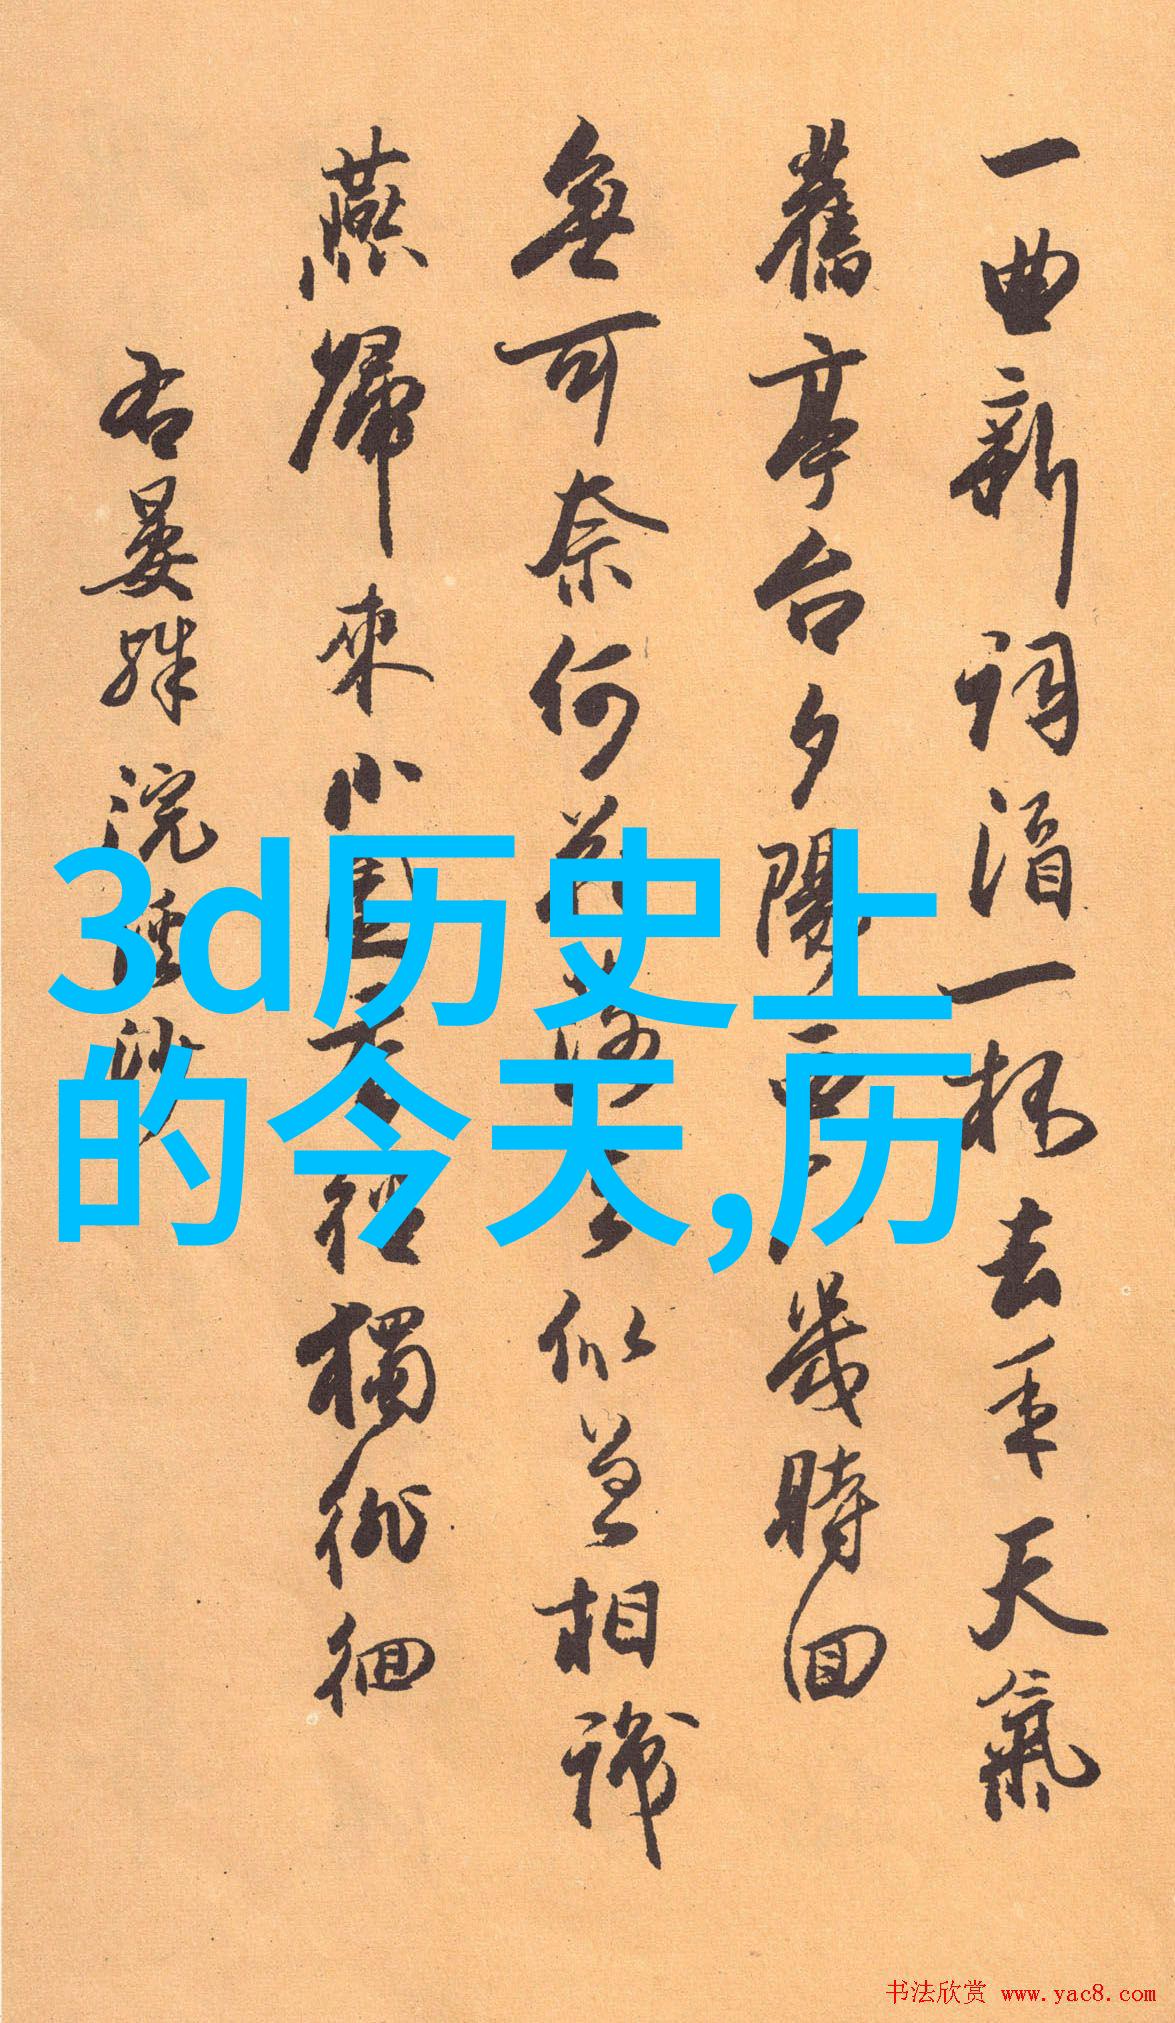 一曲新詞酒一杯去年天氣
舊亭台夕陽西下幾時回
無可奈何花落去似曾相識
燕歸來小園香徑獨徘徊
右晏殊浣溪沙
3d历史上
的今天,历
书法欣赏 www.yac8.com